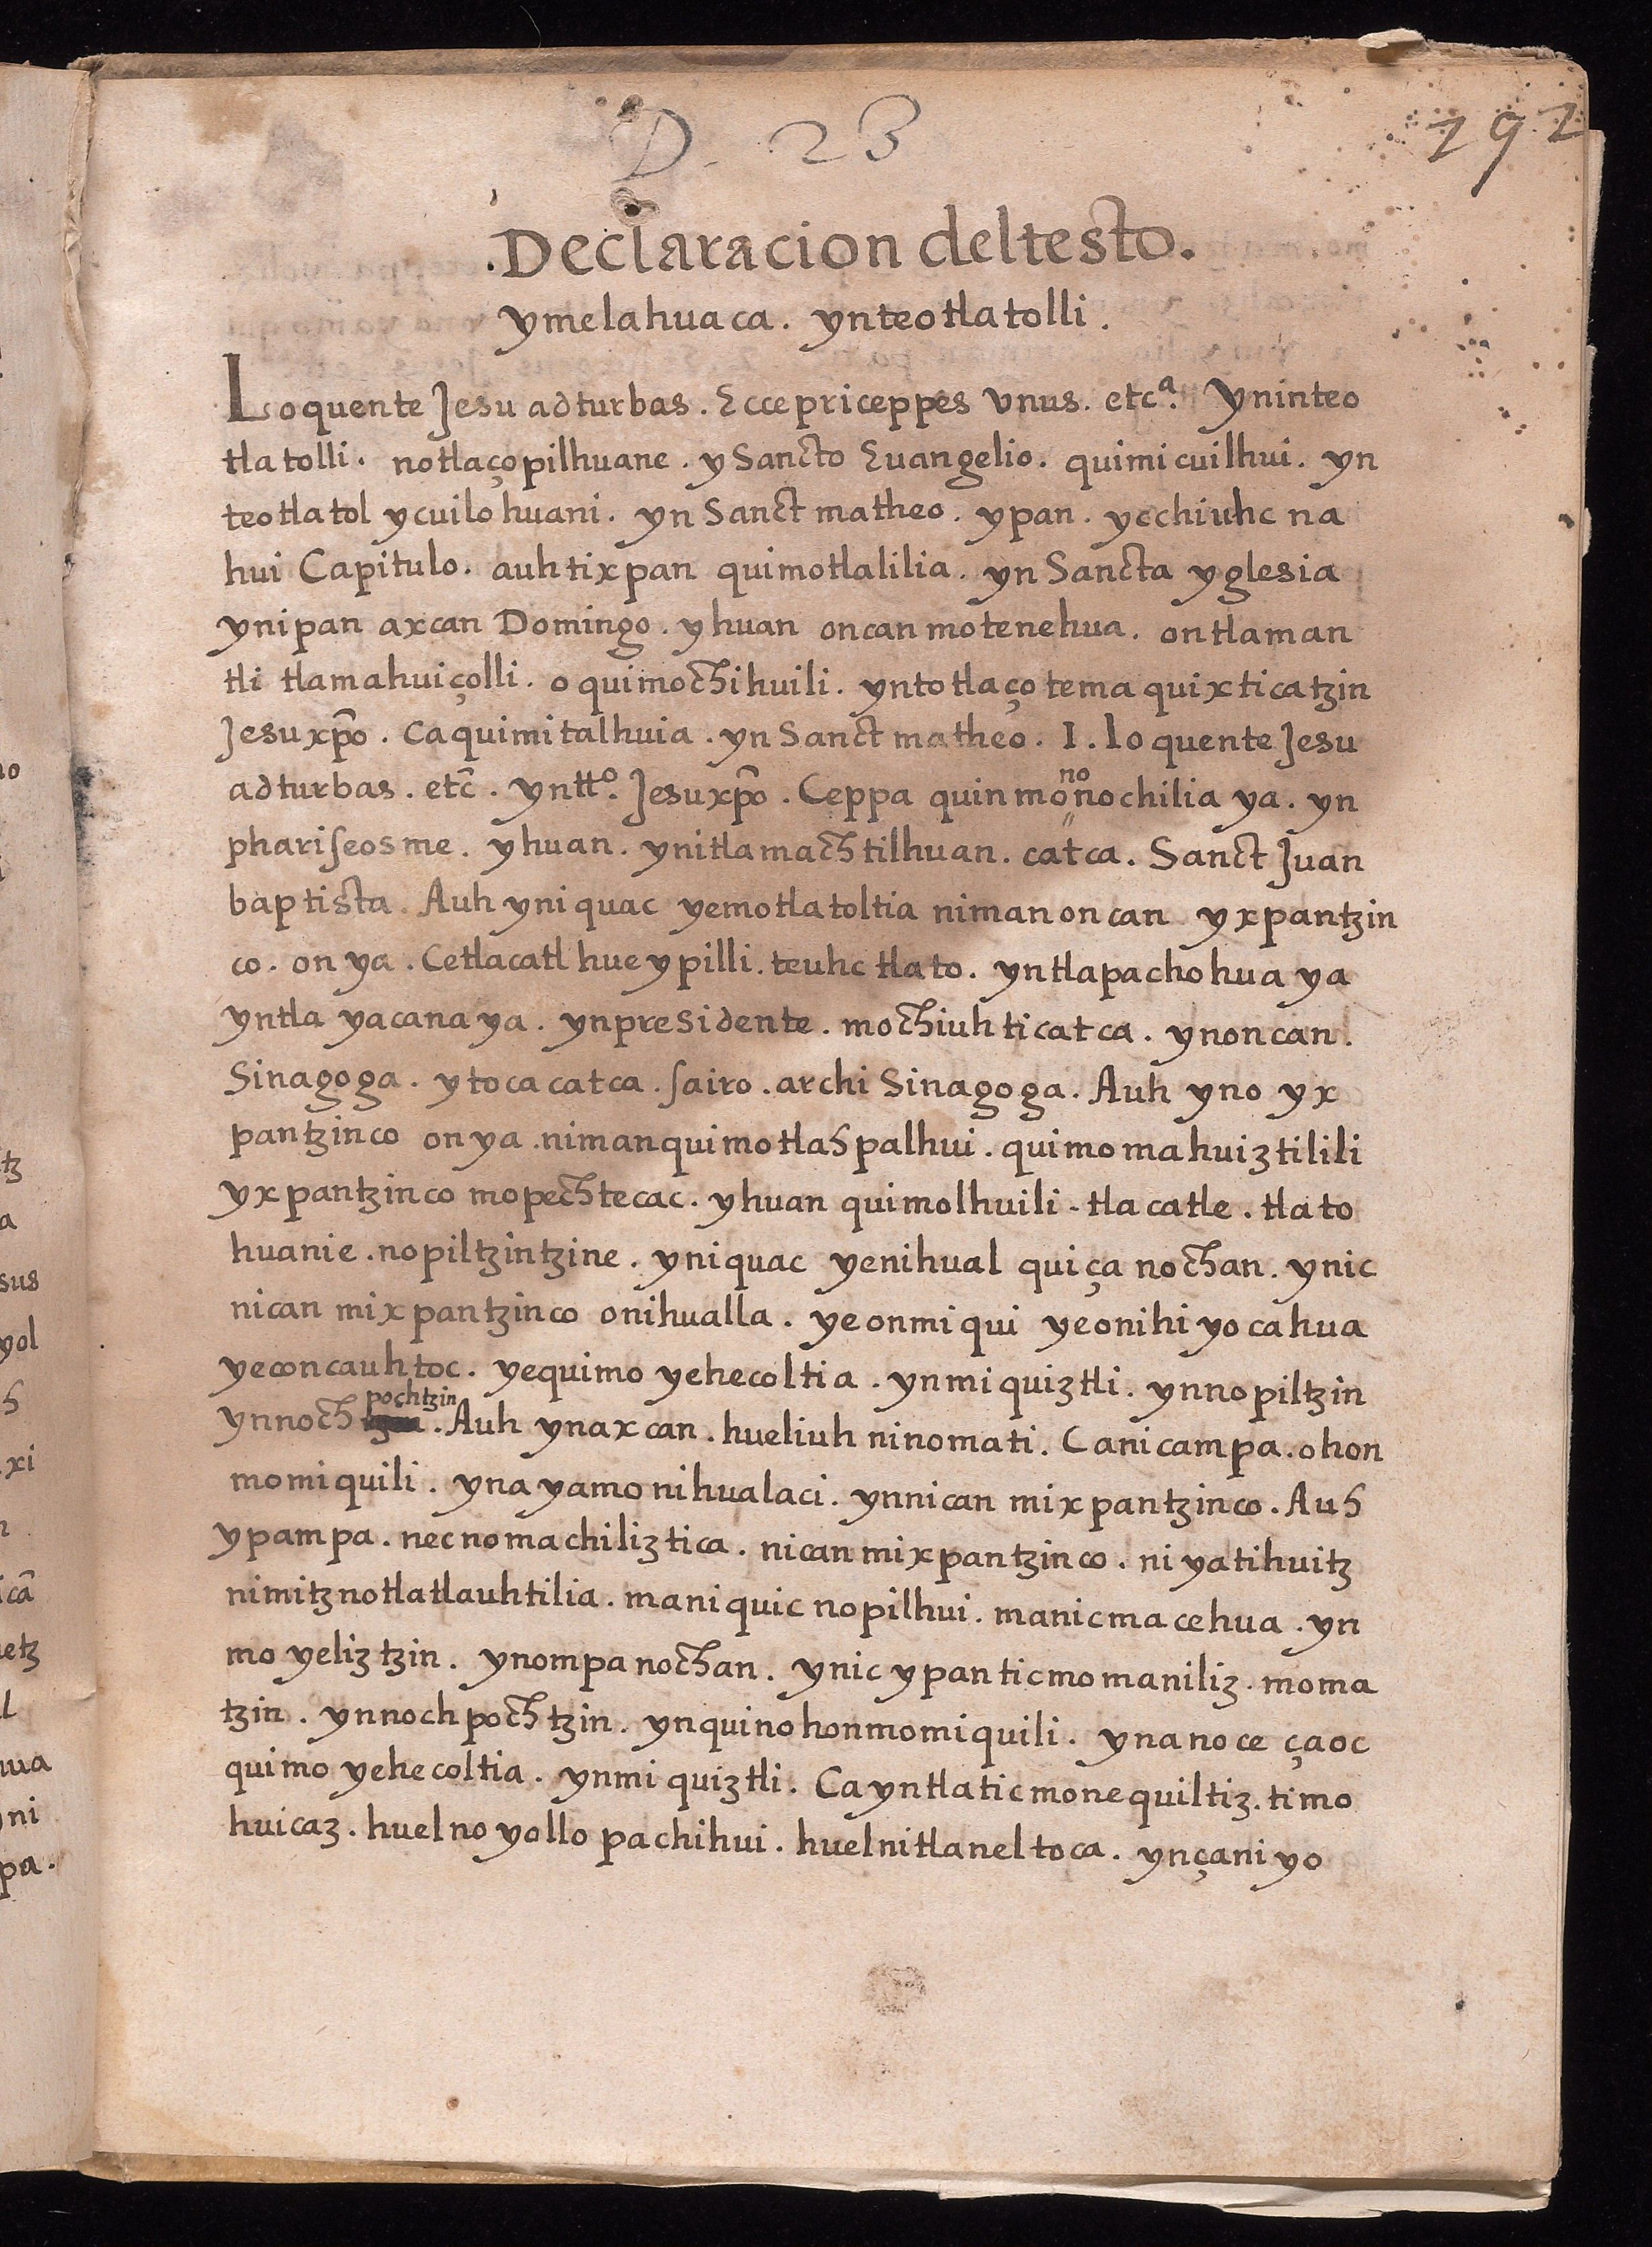 D. 23
292
.Declaracion deltesto.
ymelahuaca. ynteotlatolli.
Loquente Jesu adturbas. Eccepriceppes vnus. etcª. Yninteo
tlatolli. notlaçopilhuane. y Sancto Euangelio. quimicuilhui. yn
teotlatol ycuilohuani. yn Sanct matheo. ypan. ycchiuhc na
hui Capitulo. auh tixpan quimotlalilia. yn Sancta yglesia
ynipan axcan Domingo. yhuan oncan motenehua. ontlaman
tli tlamahuiçolli. o quimochihuili. yntotlaço temaquixticatzin
Jesu xp̃o. Caquimitalhuia. yn Sanct matheo. I. loquente Jesu
adturbas. etc̃. yntt⁰. Jesuxp̃o. Ceppa quinmononochilia ya. yn
phariseosme. yhuan. ynitlamachtilhuan. catca. Sanct Juan
baptista. Auh yniquac yemotlatoltia nimanoncan yxpantzin
co. onya. Cetlacatl hueypilli. teuhc tlato. yntlapachohua ya
yntla yacanaya. ynpresidente. mochiuhticatca. ynoncan.
Sinagoga. ytocacatca. sairo. archi Sinagoga. Auh yno yx
pantzinco onya. nimanquimotlahpalhui. quimomahuiztilili
yxpantzinco mopechtecac. yhuan quimolhuili. tlacatle. tlato
huanie. nopiltzintzine. yniquac yenihual quiça nochan. ynic
nican mixpantzinco onihualla. yeonmiqui yeonihiyocahua
yeconcauhtoc. yequimo yehecoltia. ynmiquiztli. ynnopiltzin
ynnoch pochtzin. Auh ynaxcan. hueliuh ninomati. Canicampa. ohon
momiquili. yna yamo nihualaci. ynnican mixpantzinco. Auh
ypampa. necnomachiliztica. nican mixpantzinco. ni yatihuitz
nimitznotlatlauhtilia. maniquic nopilhui. manicmacehua. yn
mo yeliztzin. ynompa nochan. ynic ypan ticmomaniliz. moma
tzin. ynnochpochtzin. ynquinohonmomiquili. ynanoce çaoc
quimo yehecoltia. ynmiquiztli. Ca yntlaticmonequiltiz. timo
huicaz. huelno yollo pachihui. huelnitlaneltoca. ynçaniyo